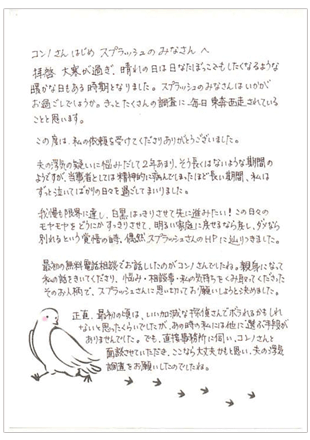 コンノさんはじめ スプラッシュのみなさんへ
拝啓 大寒が過ぎ、晴れの日は日なたぼっこでもしたくなるような
暖かな日もある時期となりました。スプラッシュのみなさんはいかが
お過ごしでしょうか。きっとたくさんの調査に、毎日東奔西走されている
ことと思います。
この度は、私の依頼を受けてくださりありがとうございました。
夫の浮気の疑いに悩みだして2年あまり、そう長くはないような期間の
ようですが、当事者としては精神的に病んでしまったほど長い期間、私は
ずっと泣いてばかりの日々を過ごしてまいりました。
我慢も限界に達し、白黒はっきりさせて先に進みたい！この日々の
モヤモヤをどうにかすっきりさせて、明るい家庭に戻せるなら戻し、ダメなら
別れるという覚悟の時、偶然スプラッシュさんのHPに辿りつきました。
最初の無料電話相談でお話ししたのがコンノさんでしたね。親身になって
私の話をきいてくださり、悩み・相談事・私の気持ちをくみ取ってくださった
そのお人柄で、スプラッシュさんに思い切ってお願いしようと決めました。
正直、最初の頃は、いい加減な探偵さんでボラれるかもしれ
ないと思ったくらいでしたが、あの時の私には他に選ぶ手段が
ありませんでした。でも、直接事務所に伺い、コンノさんと
面談させていただき、ここなら大丈夫かもと思い、夫の浮気
調査をお願いしたのでしたね。